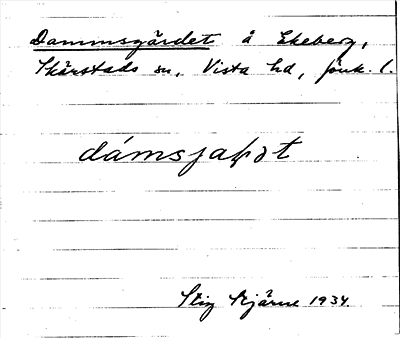 Dammsgärdet å Ekeberg,
Skärstads sn, Vista hd, Jönk. l.
dámsjaþət
Stig Stjärne 1934.